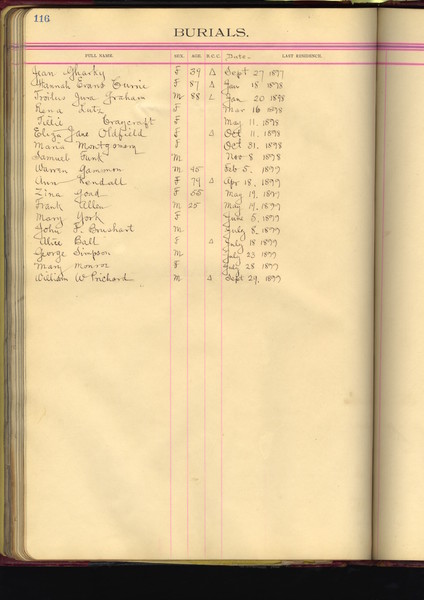 116
BURIALS.
FULL NAME. SEX. AGE. D.C.C. Date. LAST RESIDENCE.
Jean Gharky F 39 Δ Sept 27 1897
Hannah Evans Currie F 87 Δ Jan 18 1898
Graham M 88 Jan 20 1898
Rena Lutz F Mar 16 1898
Tillie Craycraft F May 11. 1898
Eliza Jane Oldfield F Δ Oct 11. 1898
Maria Montgomery F Oct 31. 1898
Samuel Funk M Nov 8 1898
Warren Gammon M 45 Feb 5. 1899
Ann Kendall F 79 Δ Apr 18, 1899
Zina F May 19, 1899
Frank Allen M 25 May 19, 1899
Mary York F June 5, 1899
John F. Brushart M July 8, 1899
Alice Ball F Δ July 18 1899
George Simpson M July 23 1899
Mary Monroe F July 28 1899
William W Prichard M Δ Sept 29, 1899